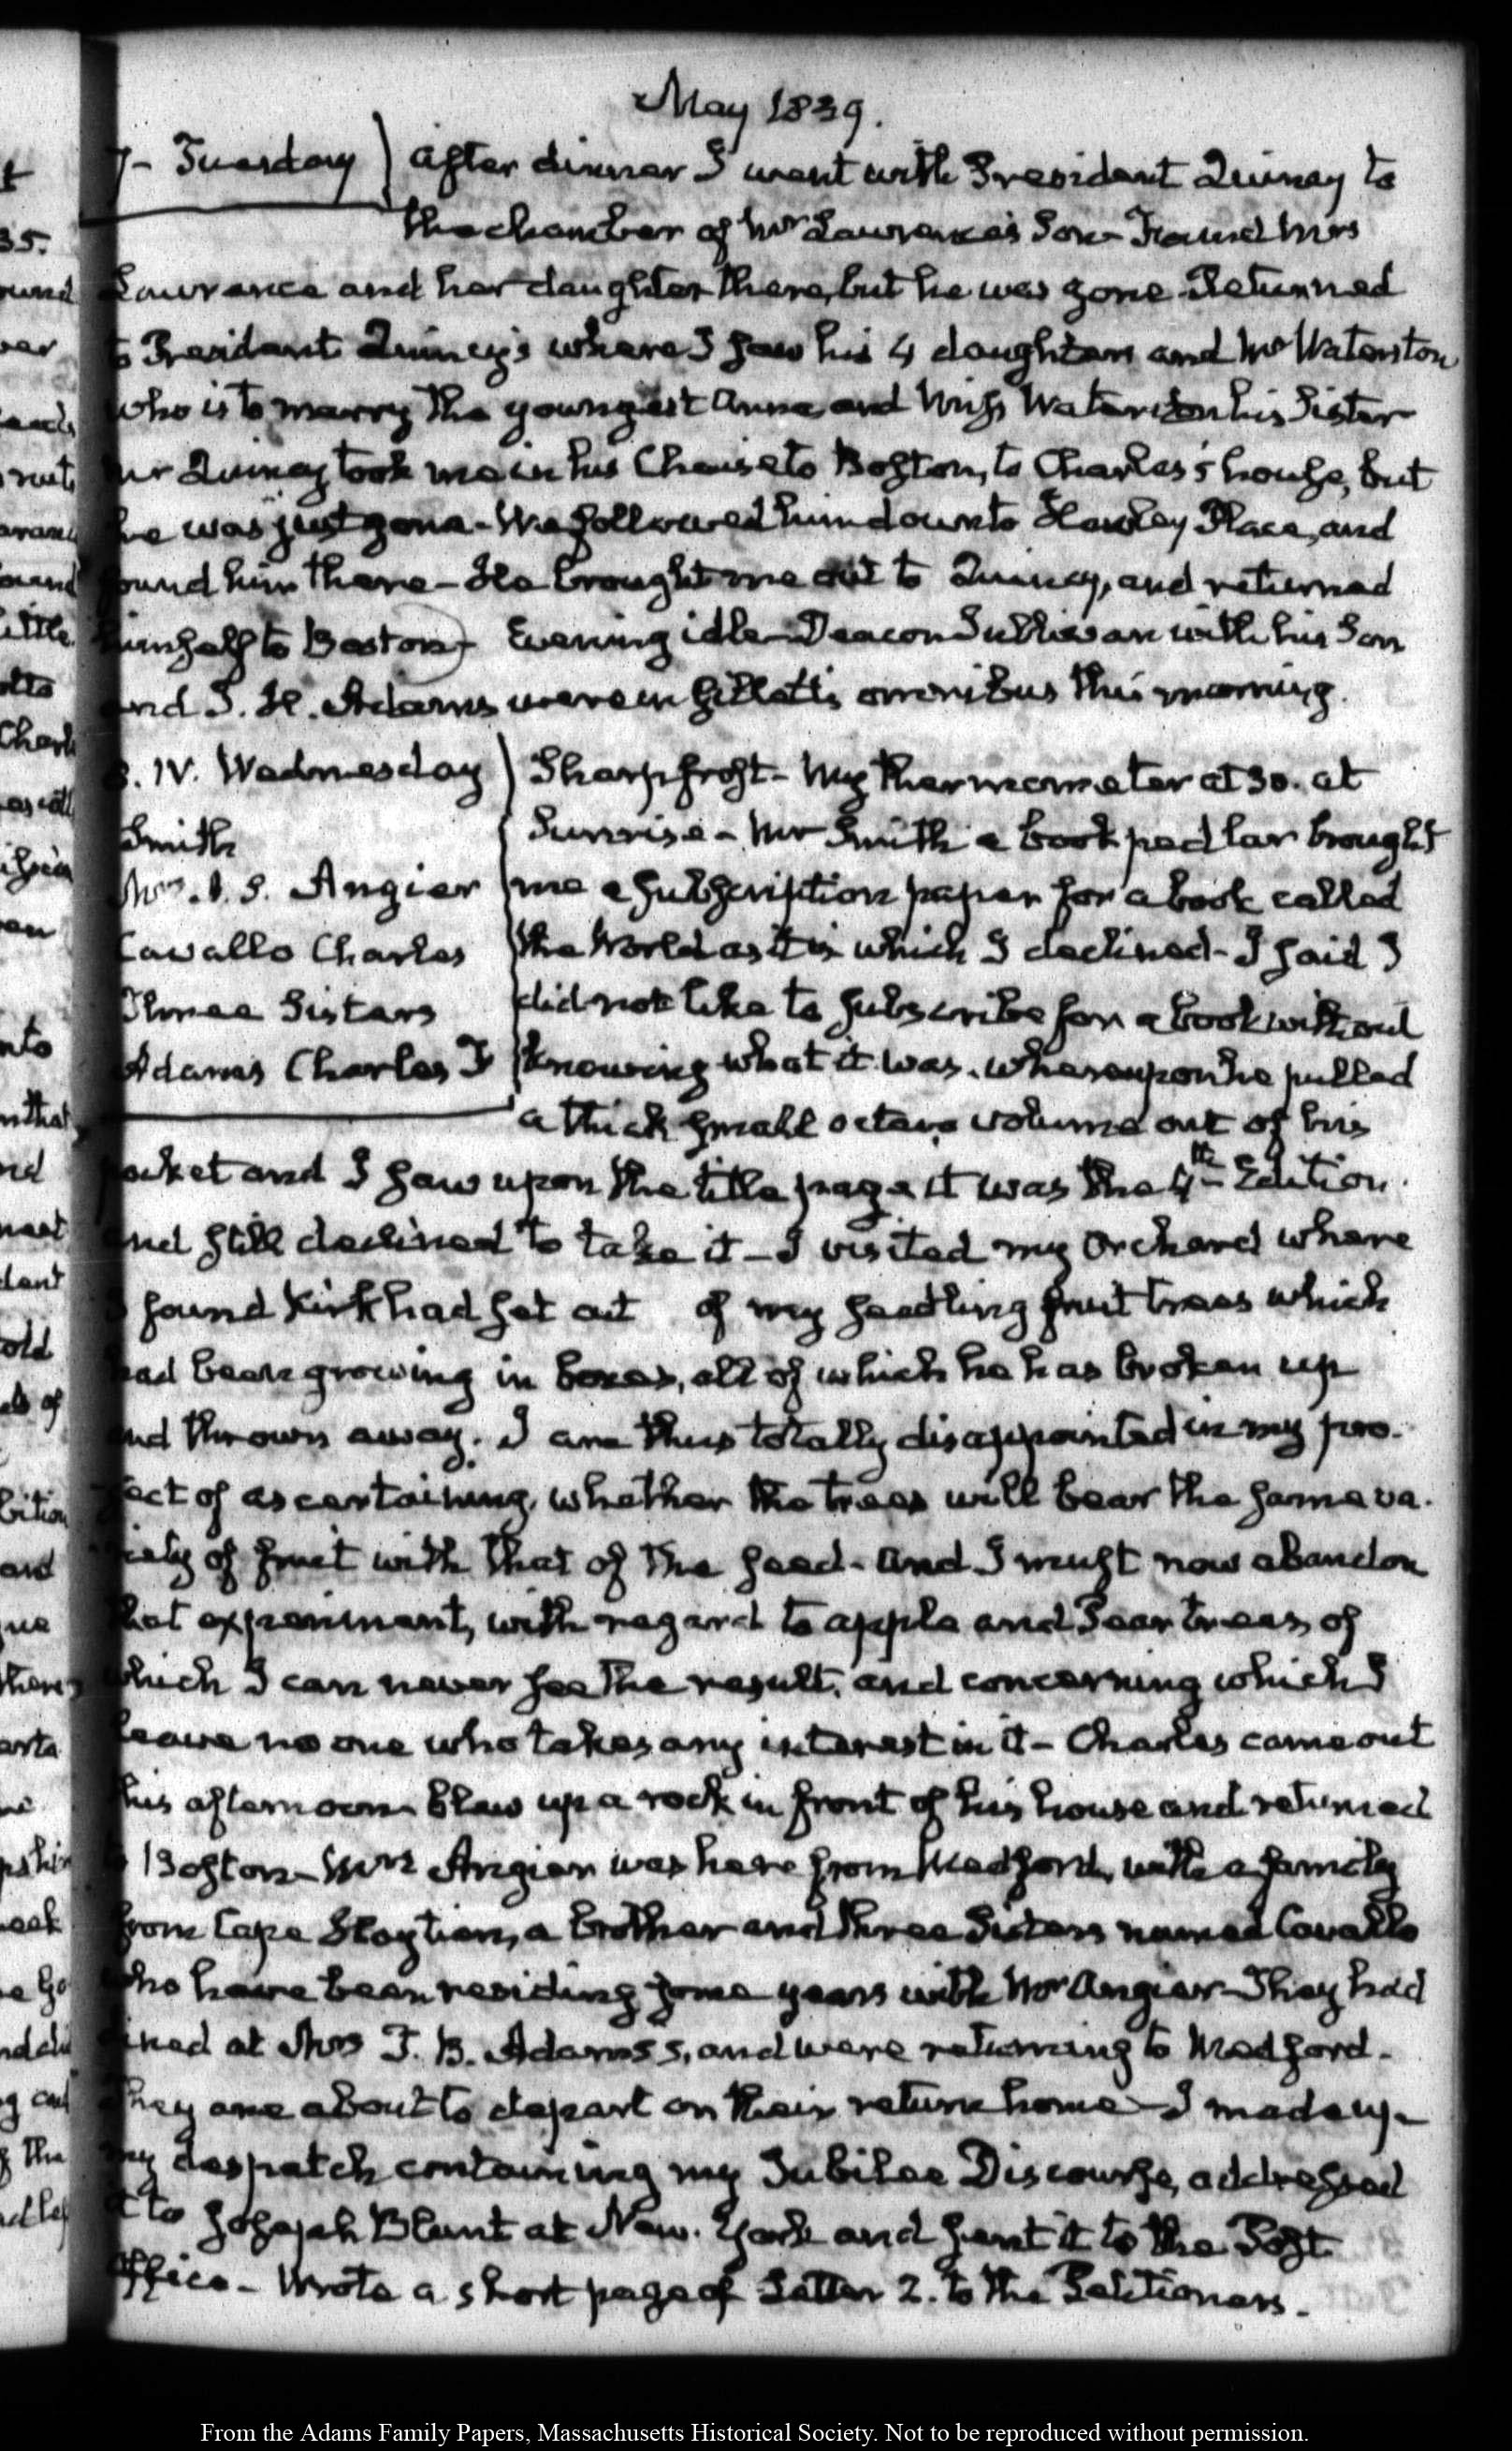 May 1839.
7- Tuesday
after dinner I went with President Quincy to
the chamber of Mr Lawrence's Son- Found Mrs
Lawrence and her daughter there, but he was gone- Returned
to President Quincy's where I saw his 4 daughters and Mr Waterston
who is to marry the youngest Anna and Miss Waterston his Sister
Mr Quincy took me in his Chaise to Boston, to Charles's house, but
he was just gone- We followed him down to Hawley Place, and
found him there- He brought me out to Quincy, and returned
himself to Boston- Evening idle- Deacon Sullivan with his Son
and I. H. Adams were in Gillett's omnibus this morning.
8. IV. Wednesday
Smith
Mrs. Angier
Cavallo Charles
Three Sisters
Adams Charles F
Sharp frost- My thermometer at 30. at
Sunrise- Mr Smith a book pedlar brought
me a subscription paper for a book called
the World as it is which I declined- I said I
did not like to subscribe for a book without
knowing what it was. whereupon he pulled
a thick small octavo volume out of his
pocket and I saw upon the title page it was the 4th Edition.
and still declined to take it- I visited my Orchard where
I found Kirk had set out of my seedling fruit trees which
had been growing in boxes, all of which he has broken up
and thrown away. I am thus totally disappointed in my pro-
ject of ascertaining, whether the trees will bear the same va-
riety of fruit with that of the seed- and I must now abandon
that experiment, with regard to apple and Pear trees, of
which I can never see the result, and concerning which I
leave no one who takes any interest in it- Charles came out
this afternoon blew up a rock in front of his house and returned
to Boston- Mrs Angier was here from Medford, with a family
from Cape Haytien, a brother and three Sisters named Cavallo
who have been residing some years with Mr Angier- They had
dined at Mrs T. B. Adams's, and were returning to Medford-
They are about to depart on their return home- I made up
my despatch containing my Jubilee Discourse, addressed
it to Joseph Blunt at New-York and sent it to the Post
Office- Wrote a short page of Letter 2. to the Petitioners.
From the Adams Family Papers, Massachusetts Historical Society. Not to be reproduced without permission.